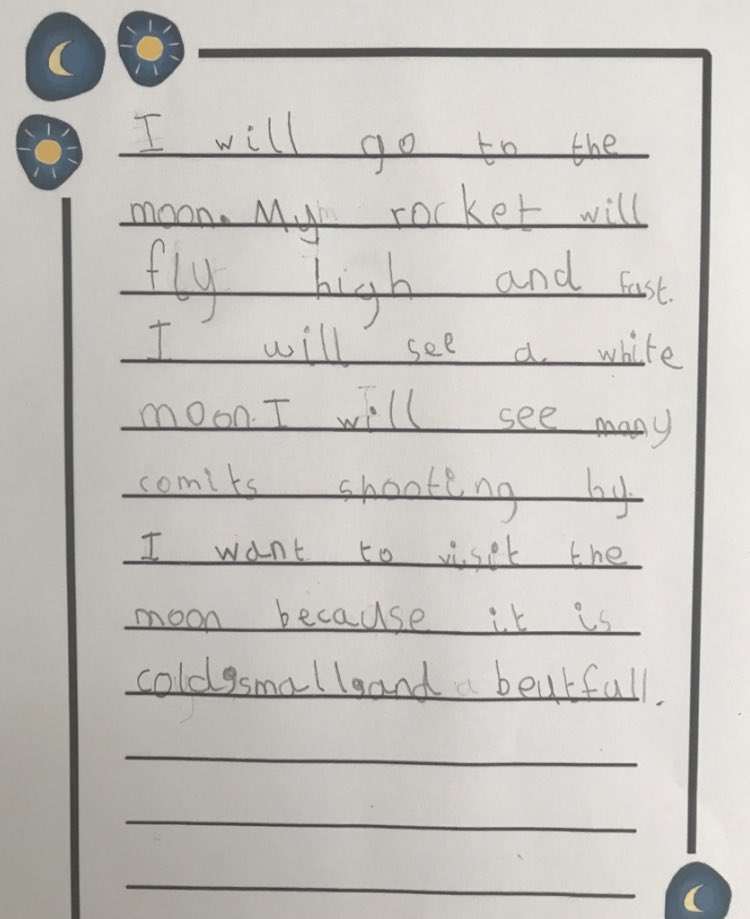 I will go to the
moon. My rocket will
fly high and fast.
I will see a white
moon. I will see many
comits shooting by.
I want to visit the
moon because it is
cold,small,and beutfull.